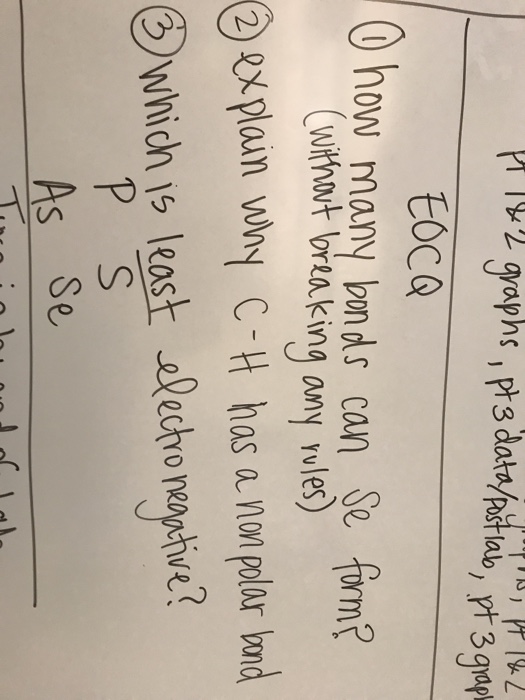 pt 1&2 graphs, pt 3 data/postlab, pt 3
EOCQ
① how many bonds can Se form?
(without breaking any rules)
② explain why C-H has a nonpolar bond
③ which is least electronegative?
P S
As Se